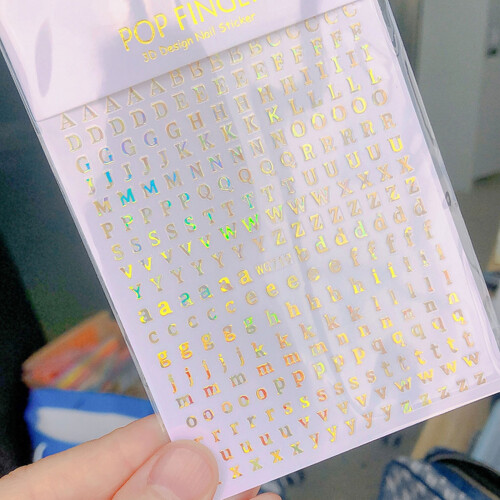 POP FINGE
3D Design Nail Sticker
A A A A A B B B B C C C C
D D D D D E E E E F F F F
G G G G G H H H H I I I I
J J J J K K K K K L L L L
M M M M M N N N N O O O O O
P P P P Q Q Q Q Q R R R R R
S S S S S T T T T U U U U U
V V V V V W W W W X X X X
Y Y Y Y Y Z Z Z Z Z Z Z
a a a a a d d d d d
c c c c c e e e e e f f f f
g g g g g h h h h i i i i
j j j j k k k k l l l l
m m m m m n n n n
o o o o o p p p p q q q q
r r r r s s s s s t t t t
u u u u v v v v w w w w w
x x x x y y y y z z z z z